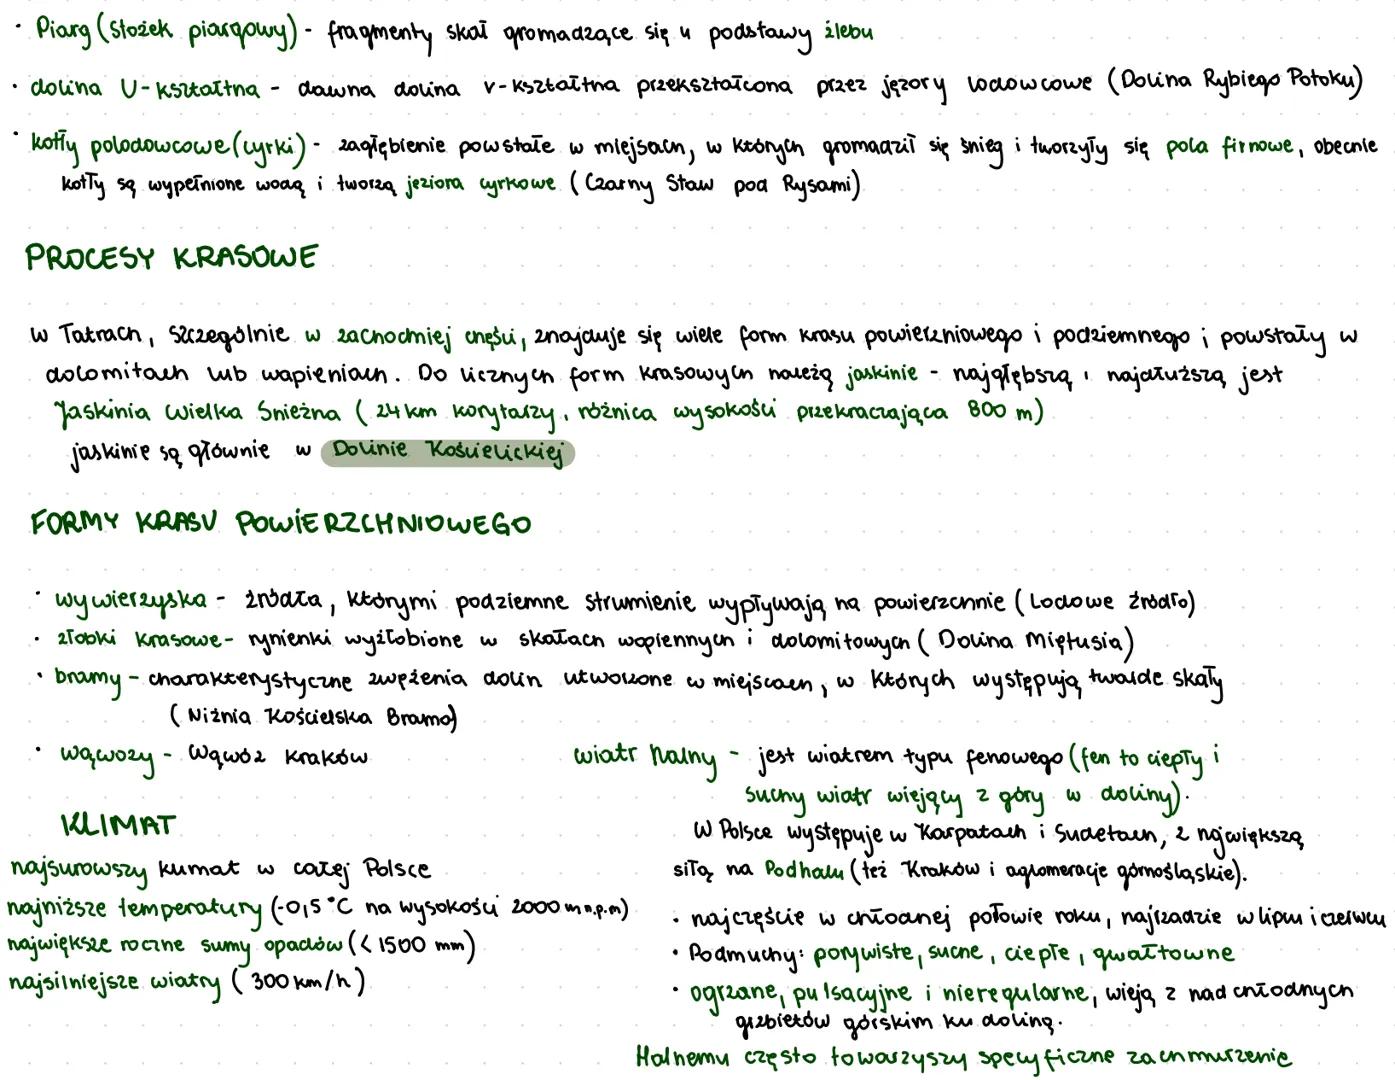 · Piarg (Stożek piargowy) - fragmenty skał gromadzące się u podstawy żlebu
· dolina U-kształtna - dawna dolina v-kształtna przekształcona przez jęzory lodowcowe (Dolina Rybiego Potoku)
· kotły polodowcowe (cyrki) - zagłębienie powstałe w miejsach, w których gromadził się śnieg i tworzyły się pola firnowe, obecnie
kotły są wypełnione wodą i tworzą jeziora cyrkowe (Czarny Staw pod Rysami)
PROCESY KRASOWE
W Tatrach, szczególnie w zachodniej części, znajduje się wiele form krasu powierzniowego i podziemnego ; powstały w
dolomitach lub wapieniach. Do licznych form krasowych należą jaskinie - najgłębszą i najdłuższą jest
Jaskinia Wielka Śnieżna (24 km korytarzy, różnica wysokości przekraczająca 800 m)
jaskinie są głównie w Dolinie Kościelickiej
FORMY KRASU POWIERZCHNIOWEGO
· wywierzyska - źródła, którymi podziemne strumienie wypływają na powierzchnie (Lodowe Źródło)
· żłobki krasowe - rynienki wyżłobione w skałach wapiennych i dolomitowych (Dolina Miętusia)
· bramy - charakterystyczne zwężenia dolin utworzone w miejscach, w których występują twarde skały
(Niżnia Kościelska Brama)
· wąwozy - Wąwóz Kraków
KLIMAT
najsurowszy klimat w całej Polsce
najniższe temperatury (-0,5 °C na wysokości 2000 m n.p.m)
największe roczne sumy opadów (< 1500 mm)
najsilniejsze wiatry (300 km/h)
wiatr halny - jest wiatrem typu fenowego (fen to ciepły i
suchy wiatr wiejący z góry w doliny).
W Polsce występuje w Karpatach i Sudetach, z największą
siłą na Podhalu (też Kraków i aglomeracje górnośląskie).
· najczęście w chłodnej połowie roku, najrzadzie w lipcu i czerwcu
· Podmuchy: porywiste, suche, ciepłe, gwałtowne
· ogrzane, pulsacyjne i nieregularne, wieją z nad chłodnych
grzbietów górskim ku doliną.
Halnemu często towarzyszy specyficzne zachmurzenie